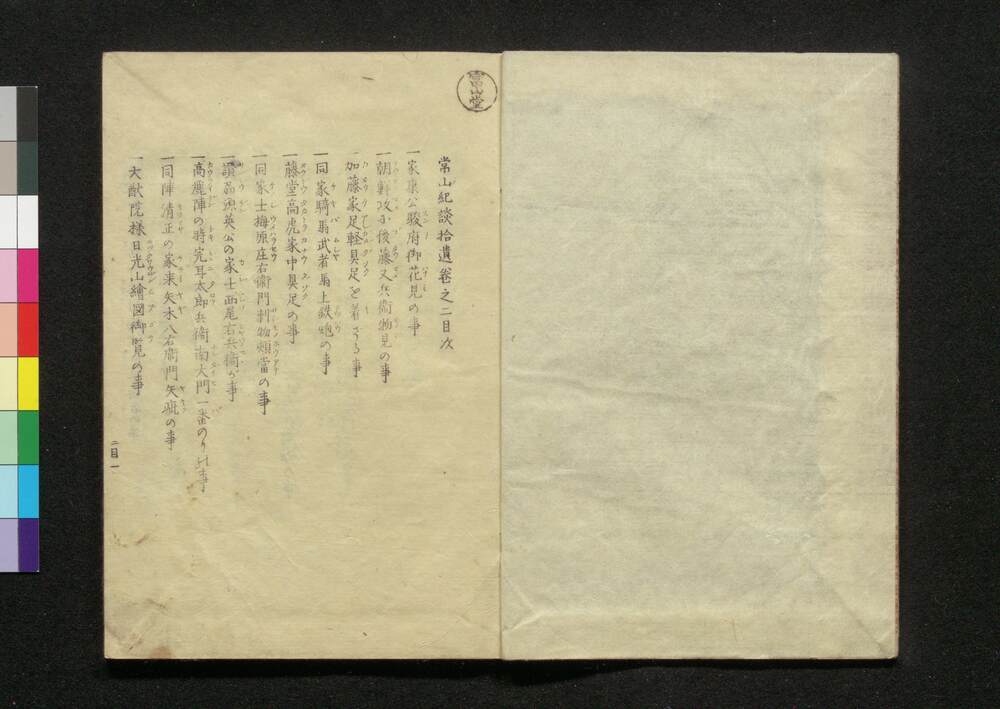 常山紀談拾遺卷之二目次
一家康公駿府御花見の事
一朝鮮攻に後藤又兵衛物見の事
一加藤家足軽具足を着ざる事
一同家騎馬武者馬上鉄炮の事
一藤堂高虎家中具足の事
一同家士梅原庄右衛門の物頬當の事
一讃岐英公の家士西尾右兵衛が事
一高麗陣の時完耳太郎兵衛南大門一番のりの事
一同陣清正の家来矢木八右衛門矢疵の事
一大猷院様日光山繪図御覧の事
二目一